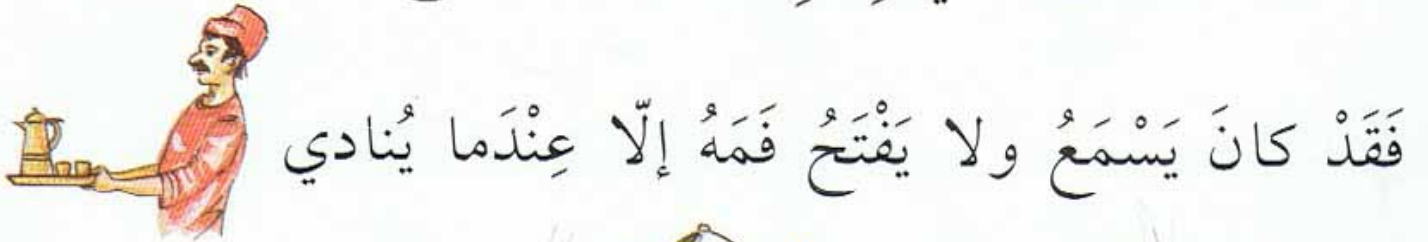 فَقَدْ كانَ يَسْمَعُ ولا يَفْتَحُ فَمَهُ إلّا عِنْدَما يُنادي